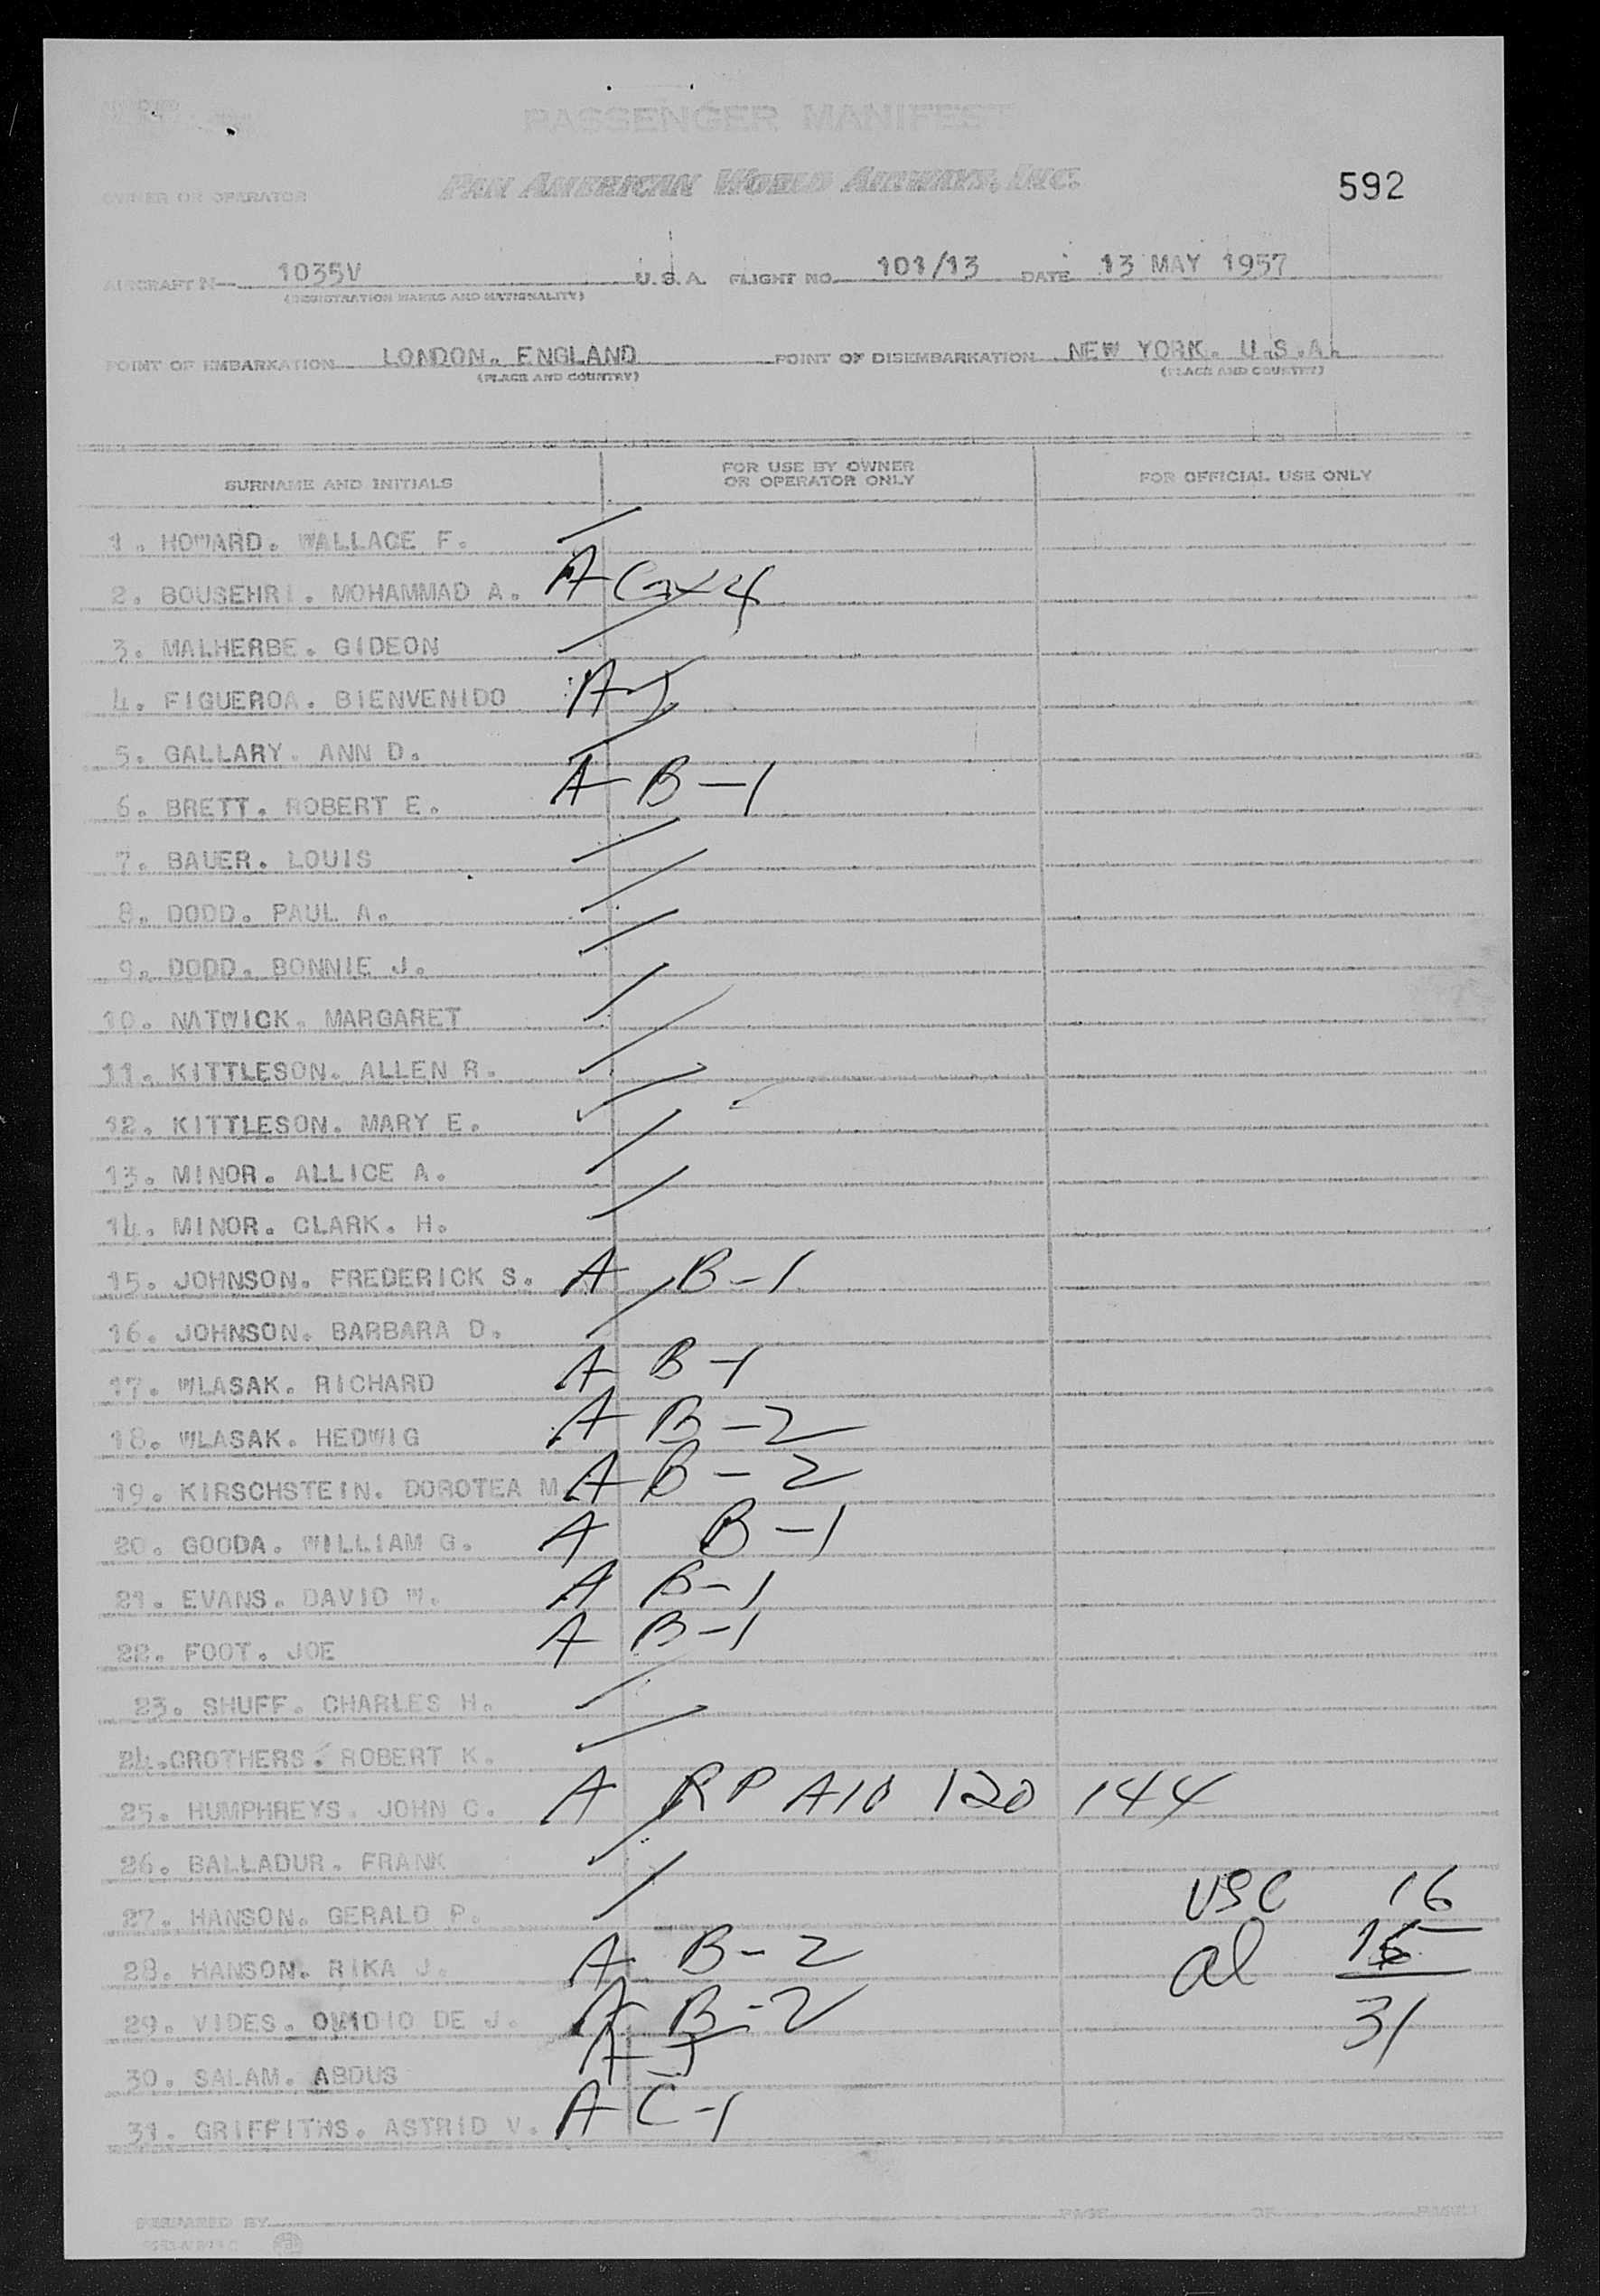 PASSENGER MANIFEST
PAN AMERICAN WORLD AIRWAYS, INC.
592
OWNER OR OPERATOR
AIRCRAFT N— 1035V U.S.A. FLIGHT NO. 101/13 DATE 13 MAY 1957
(REGISTRATION MARKS AND NATIONALITY)
POINT OF EMBARKATION LONDON. ENGLAND POINT OF DISEMBARKATION NEW YORK. U.S.A.
(PLACE AND COUNTRY) (PLACE AND COUNTRY)
SURNAME AND INITIALS FOR USE BY OWNER OR OPERATOR ONLY FOR OFFICIAL USE ONLY
1. HOWARD. WALLACE F. /
2. BOUSEHRI. MOHAMMAD A. A
3. MALHERBE. GIDEON /
4. FIGUEROA. BIENVENIDO A
5. GALLARY. ANN D. /
6. BRETT. ROBERT E. A B-1
7. BAUER. LOUIS /
8. DODD. PAUL A. /
9. DODD. BONNIE J. /
10. NATWICK. MARGARET /
11. KITTLESON. ALLEN R. /
12. KITTLESON. MARY E. /
13. MINOR. ALLICE A. /
14. MINOR. CLARK. H. /
15. JOHNSON. FREDERICK S. A B-1
16. JOHNSON. BARBARA D. /
17. WLASAK. RICHARD A B-1
18. WLASAK. HEDWIG A B-2
19. KIRSCHSTEIN. DOROTEA M. A B-2
20. GOODA. WILLIAM G. A B-1
21. EVANS. DAVID W. A B-1
22. FOOT. JOE A B-1
23. SHUFF. CHARLES H. /
24. GROTHERS. ROBERT K. /
25. HUMPHREYS. JOHN C. A RP A10 120 144
26. BALLADUR. FRANK /
27. HANSON. GERALD P. / USC 16
28. HANSON. RIKA J. A B-2 al 15
29. VIDES. OVIDIO DE J. A B-2 31
30. SALAM. ABDUS A J
31. GRIFFITHS. ASTRID V. A C-1
PREPARED BY PAGE OF PAGES